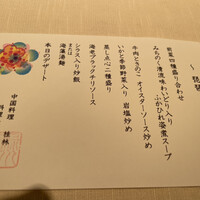 前菜四種盛り合わせ
みちのく清流味わいどり入り
ふかひれ姿煮スープ
牛肉ときのこ オイスターソース炒め
いかと季節野菜入り 岩塩炒め
蒸し点心二種盛り
海老ブラックチリソース
シラス入り炒飯
または
海藻湯麺
本日のデザート
中国料理
料理
桂林